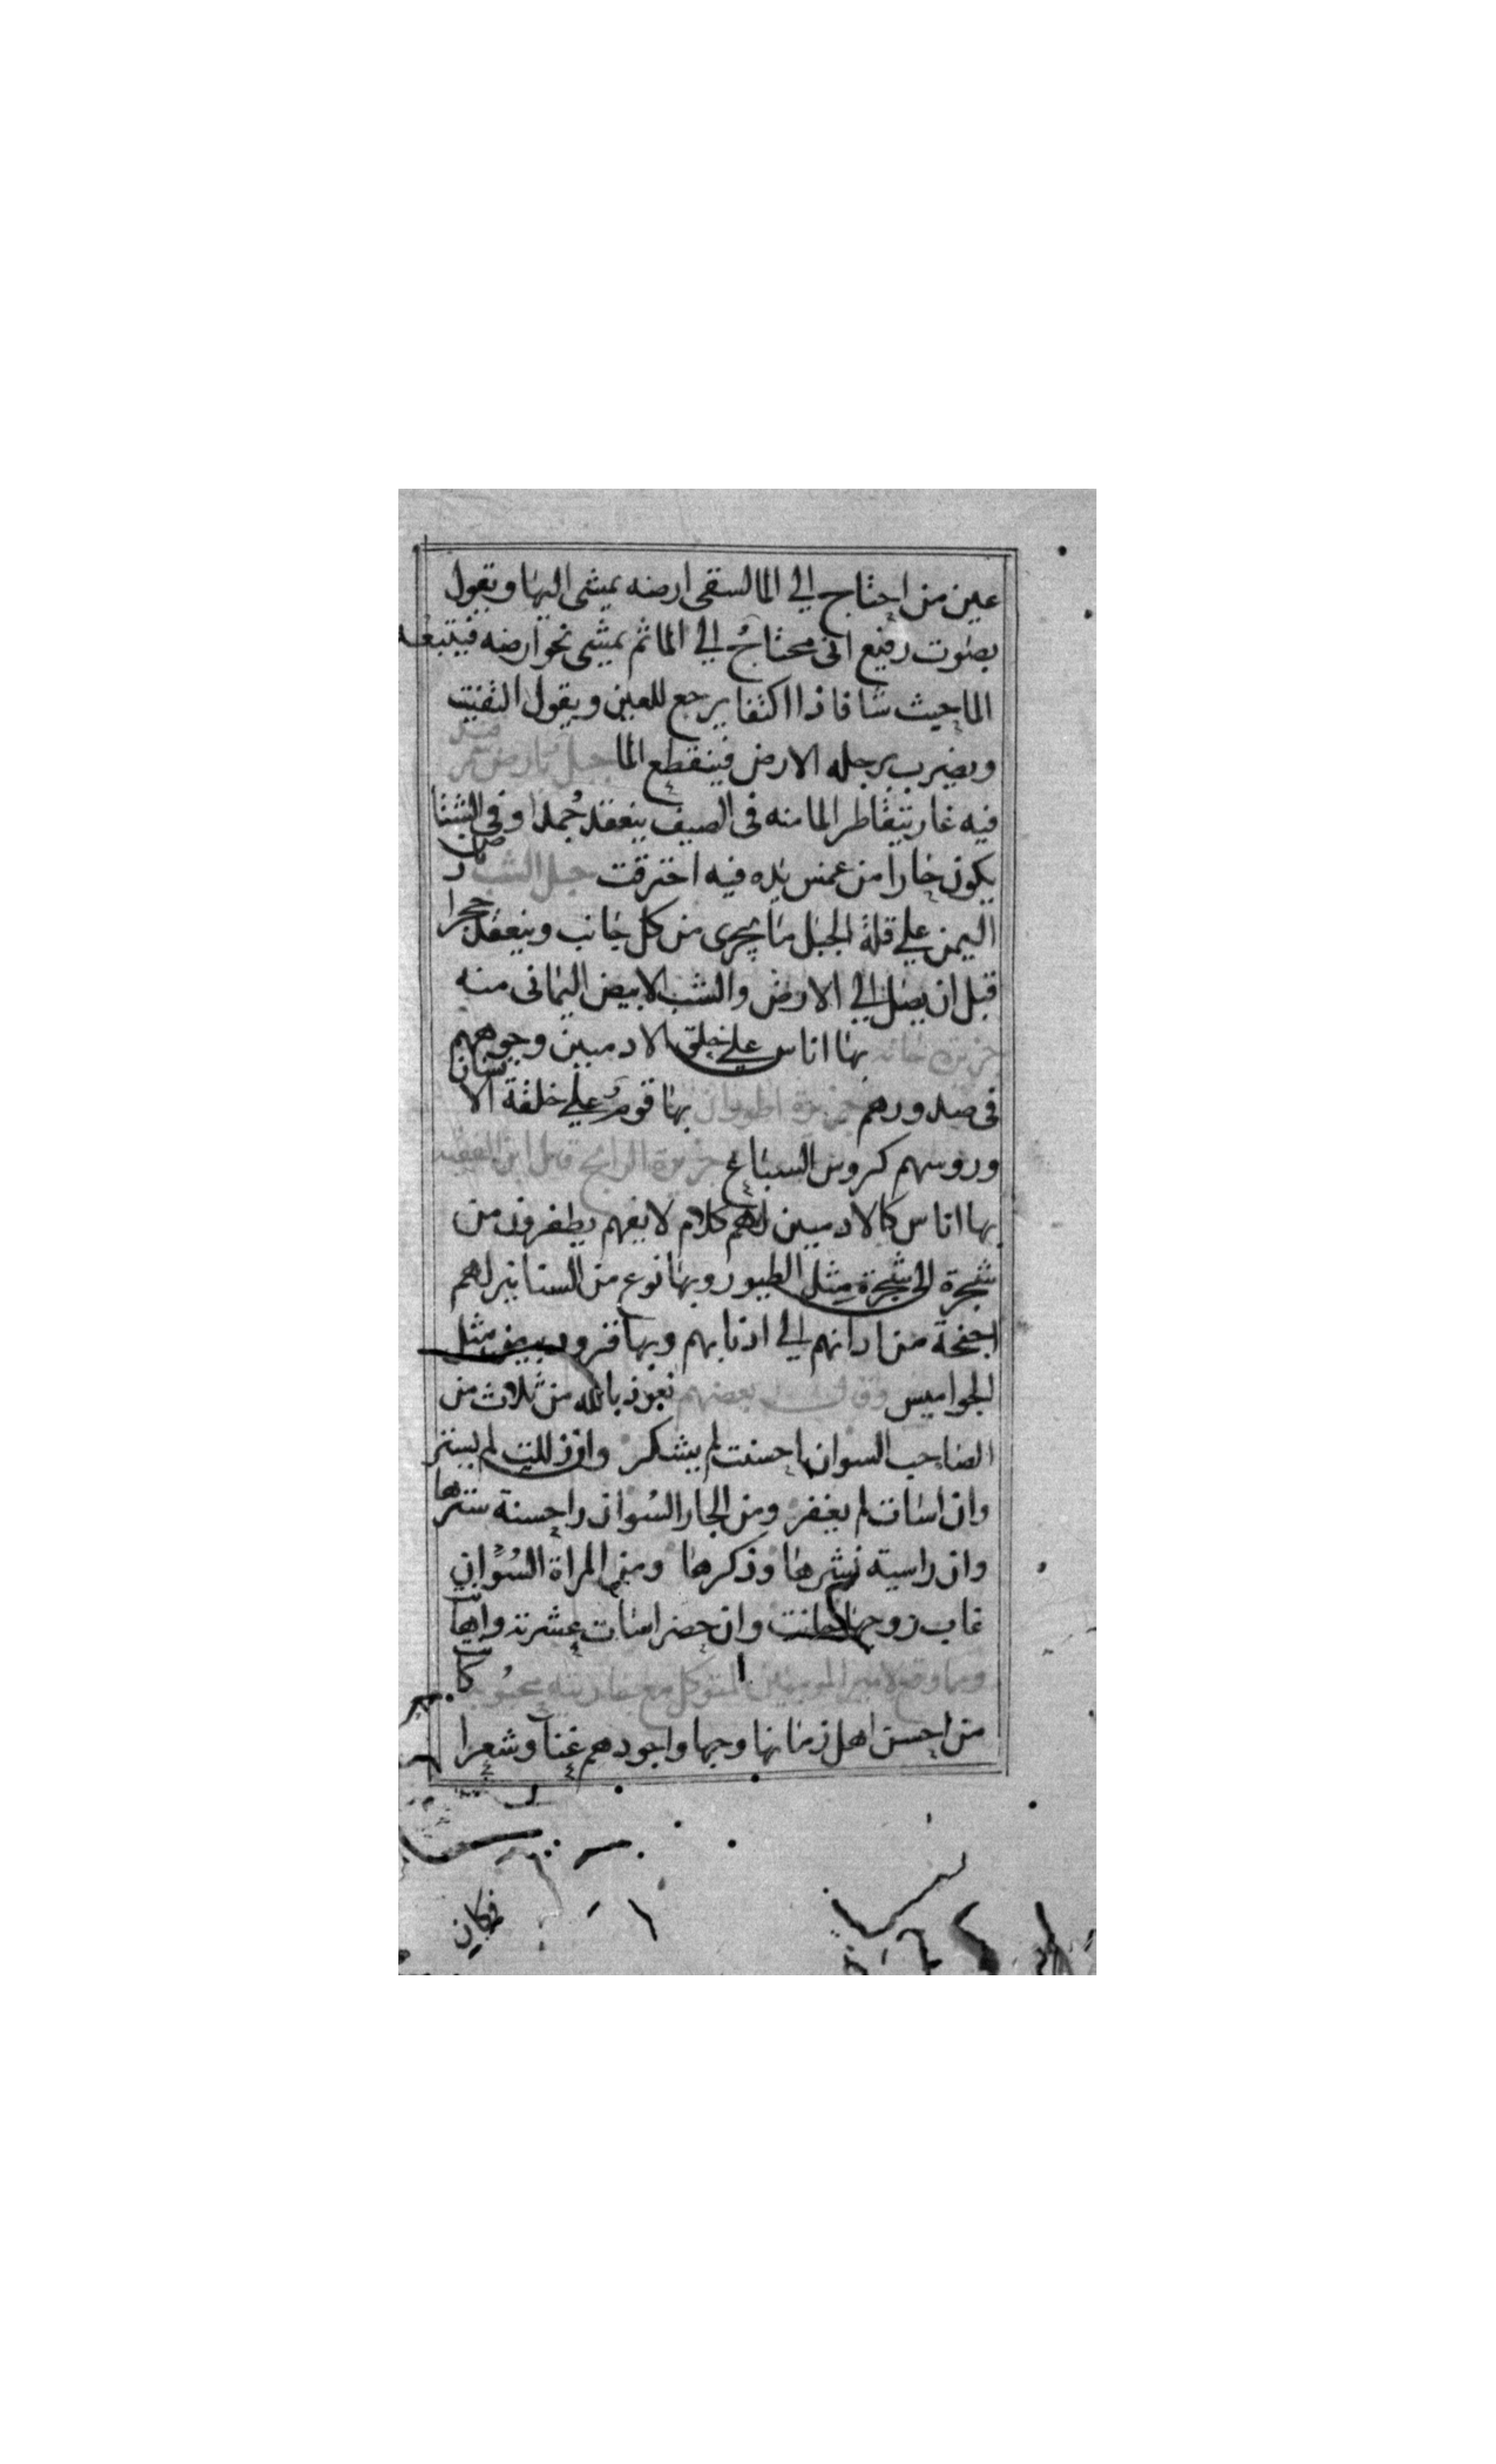 عين من احتاج الي الما لسقى ارضه يمشى اليها ويقول
بصوت رفيع انى محتاج الي الما ثم يمشى نحو ارضه فيتبعه
الما حيث شا فاذا اكتفا يرجع للعين ويقول
ويضرب برجله الارض فينقطع الما جبل بارض
فيه غار يتقاطر الما منه فى الصيف ينعقد جمدا وفى الشتا
يكون حارا من غمس يده فيه احترقت جبل الشب بارض
اليمن علي قلة الجبل ما يجرى من كل جانب وينعقد حجرا
قبل ان يصل الي الارض والشب الابيض اليمانى منه
جزيرة بها اناس علي خلق الادميين وجوههم
فى صدورهم جزيرة اطوران بها قوم علي خلقة الانسان
وروسهم كروس السباع جزيرة الرانج قال ابن الفقيه
بها اناس كالادميين لهم كلام لا يفهم يطفرون من
شجرة الى شجرة مثل الطيور وبها نوع من السنانير لهم
اجنحة من ادانهم الي ادنابهم وبها قرود بيض مثل
الجواميس وقال بعضهم نعوذ بالله من ثلاث من
الصاحب السو ان احسنت لم يشكر وان زللت لم يستر
وان اسات لم يغفر ومن الجار السو ان را حسنة سترها
وان را سيته نشرها وذكرها ومن المراة السو ان
غاب زوجها خانت وان حضر اسات عشرته واهانت
ومما وقع لامير المومنين المتوكل مع جاريته محبوبة كانت
من احسن اهل زمانها وجها واجودهم غنا وشعرا
فكان